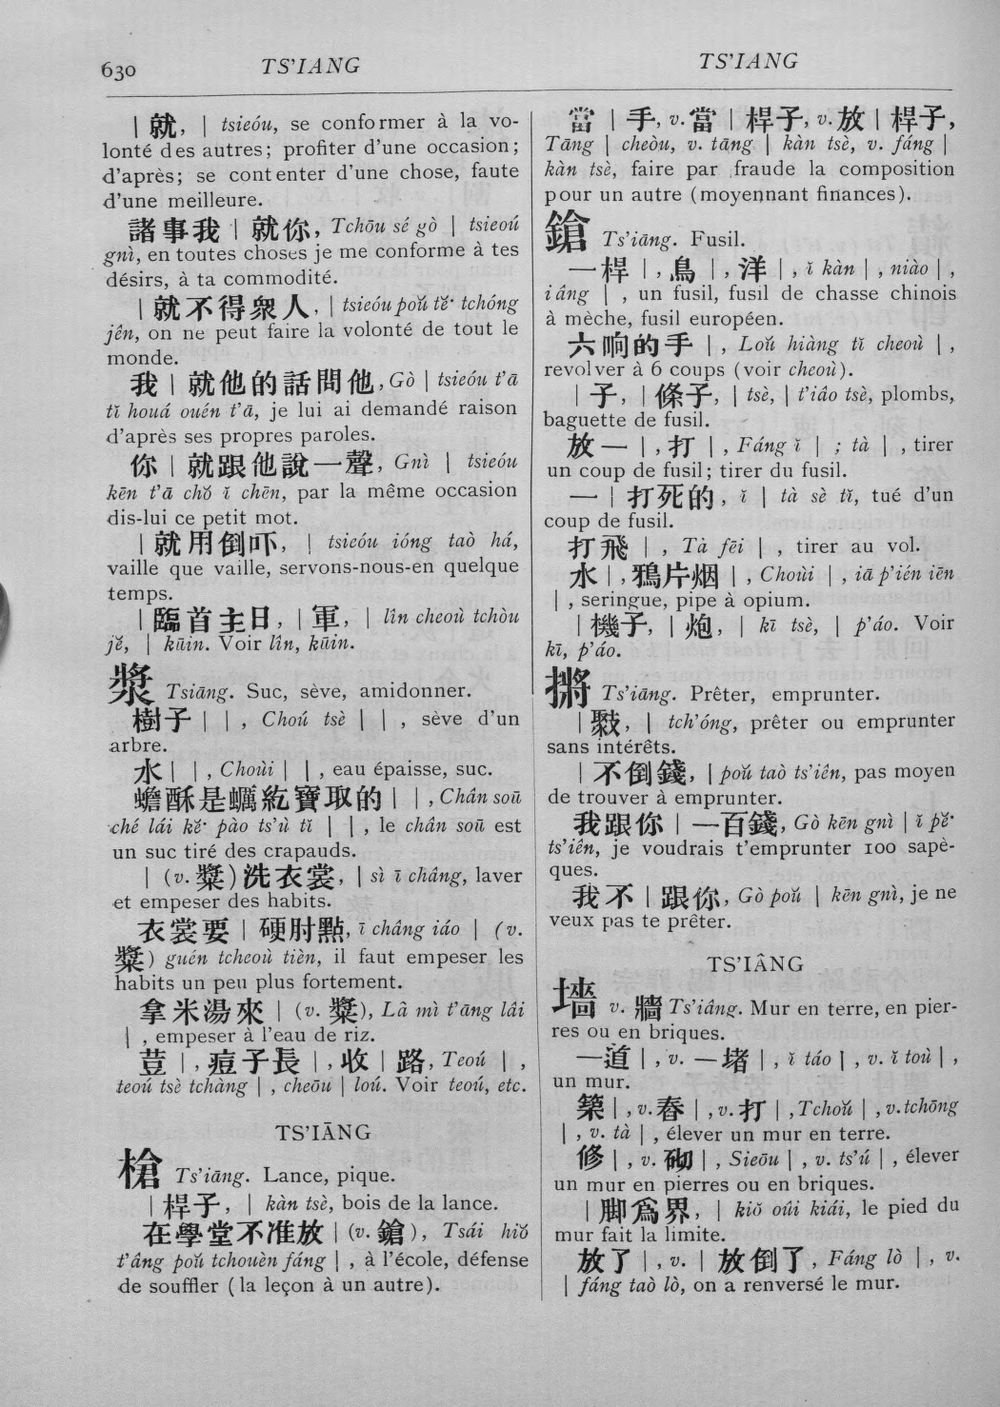 630
TS'IANG
TS'IANG
| 就, | tsieóu, se conformer à la vo-
lonté des autres; profiter d'une occasion;
d'après; se contenter d'une chose, faute
d'une meilleure.
諸事我 | 就你, Tchōu sé gò | tsieoú
gnì, en toutes choses je me conforme à tes
désirs, à ta commodité.
| 就不得衆人, | tsieóu poŭ tĕ· tchóng
jên, on ne peut faire la volonté de tout le
monde.
我 | 就他的話問他, Gò | tsieóu t'ā
tĭ houá ouén t'ā, je lui ai demandé raison
d'après ses propres paroles.
你 | 就跟他說一聲, Gnì | tsieóu
kēn t'ā chŏ ĭ chēn, par la même occasion
dis-lui ce petit mot.
| 就用倒吓, | tsieóu ióng taò há,
vaille que vaille, servons-nous-en quelque
temps.
| 臨首主日, | 軍, | lîn cheoù tchòu
jĕ, | kūin. Voir lîn, kūin.
漿 Tsiāng. Suc, sève, amidonner.
樹子 | | , Choú tsè | | , sève d'un
arbre.
水 | | , Choùi | | , eau épaisse, suc.
蟾酥是蠣紇寶取的 | | , Chân soū
ché lái kĕ· pào ts'ù tĭ | | , le chân soū est
un suc tiré des crapauds.
| (v. 糡) 洗衣裳, | sì ī châng, laver
et empeser des habits.
衣裳要 | 硬肘點, ī châng iáo | (v.
糡) guén tcheoù tièn, il faut empeser les
habits un peu plus fortement.
拿米湯來 | (v. 糡), Lâ mì t'āng lâi
| , empeser à l'eau de riz.
荳 | , 痘子長 | , 收 | 路, Teoú | ,
teoú tsè tchàng | , cheōu | loú. Voir teoú, etc.
TS'IĀNG
槍 Ts'iāng. Lance, pique.
| 桿子, | kàn tsè, bois de la lance.
在學堂不准放 | (v. 鎗), Tsái hiŏ
t'âng poŭ tchouèn fáng | , à l'école, défense
de souffler (la leçon à un autre).
當 | 手, v. 當 | 桿子, v. 放 | 桿子,
Tāng | cheòu, v. tāng | kàn tsè, v. fáng |
kàn tsè, faire par fraude la composition
pour un autre (moyennant finances).
鎗 Ts'iāng. Fusil.
一桿 | , 鳥 | , 洋 | , ĭ kàn | , niào | ,
iâng | , un fusil, fusil de chasse chinois
à mèche, fusil européen.
六响的手 | , Loŭ hiàng tĭ cheoù | ,
revolver à 6 coups (voir cheoù).
| 子, | 條子, | tsè, | t'iâo tsè, plombs,
baguette de fusil.
放一 | , 打 | , Fáng ĭ | ; tà | , tirer
un coup de fusil; tirer du fusil.
一 | 打死的, ĭ | tà sè tĭ, tué d'un
coup de fusil.
打飛 | , Tà fēi | , tirer au vol.
水 | , 鴉片烟 | , Choùi | , iā p'ién iēn
| , seringue, pipe à opium.
| 機子, | 炮, | kī tsè, | p'áo. Voir
kī, p'áo.
Ts'iāng. Prêter, emprunter.
| | tch'óng, prêter ou emprunter
sans intérêts.
| 不倒錢, | poŭ taò ts'iên, pas moyen
de trouver à emprunter.
我跟你 | 一百錢, Gò kēn gnì | ĭ pĕ·
ts'iên, je voudrais t'emprunter 100 sapè-
ques.
我不 | 跟你, Gò poŭ | kēn gnì, je ne
veux pas te prêter.
TS'IÂNG
墻 v. 牆 Ts'iâng. Mur en terre, en pier-
res ou en briques.
一道 | , v. 一堵 | , ĭ táo | , v. ĭ toù | ,
un mur.
築 | , v. 舂 | , v. 打 | , Tchoŭ | , v. tchōng
| , v. tà | , élever un mur en terre.
修 | , v. 砌 | , Sieōu | , v. ts'ú | , élever
un mur en pierres ou en briques.
| 脚爲界, | kiŏ oûi kiái, le pied du
mur fait la limite.
放了 | , v. | 放倒了, Fáng lò | , v.
| fáng taò lò, on a renversé le mur.